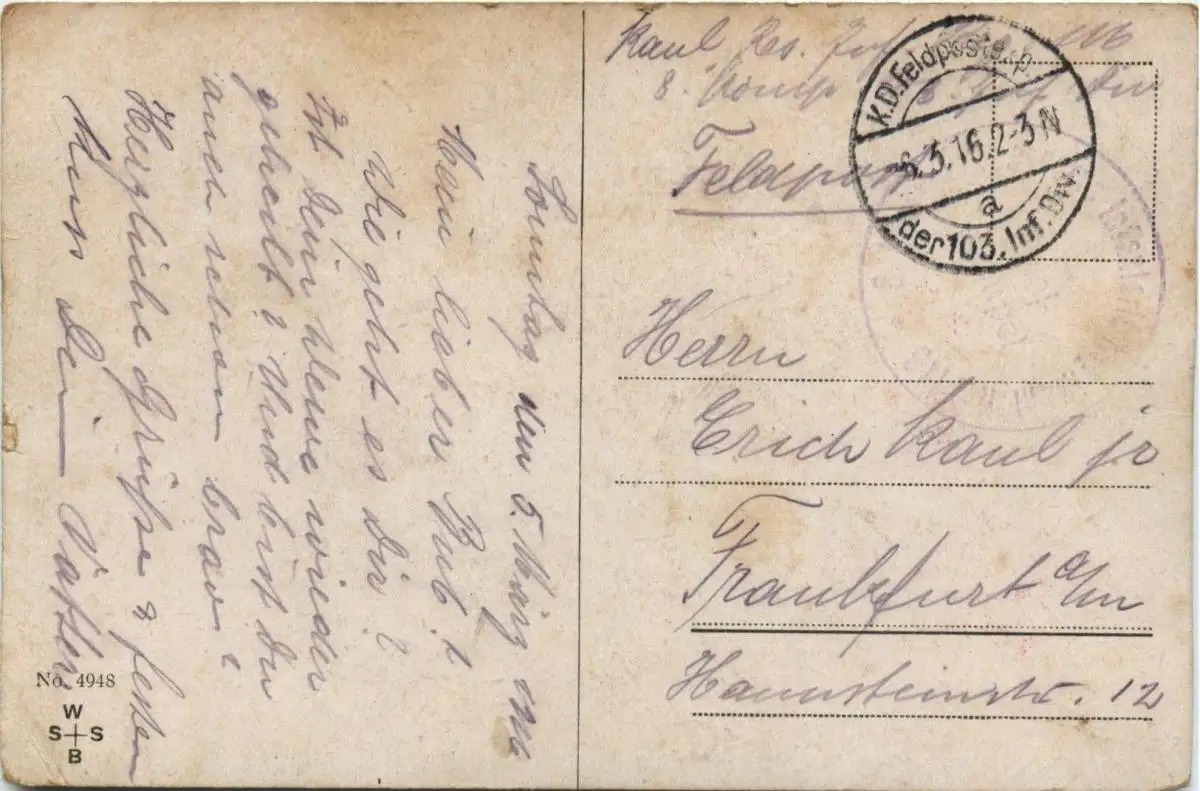 Sonntag den 5. März 1916
Mein lieber Bub!
Wie geht es Dir?
Ist Dein kleine wieder
geheilt? Und bist Du
auch schön brav?
Herzliche Grüße & festen
Kuss Dein Vatter
No. 4948
W
S S
B
Kaul Rs. Inf. 116
8. Komp Inf Div
Feldpost
K.D.Feldpostexp.
6.3.16.2-3N
a
der 103. Inf. Div.
Herrn
Erich Kaul jr
Frankfurt a/m
Hannsteinstr. 12